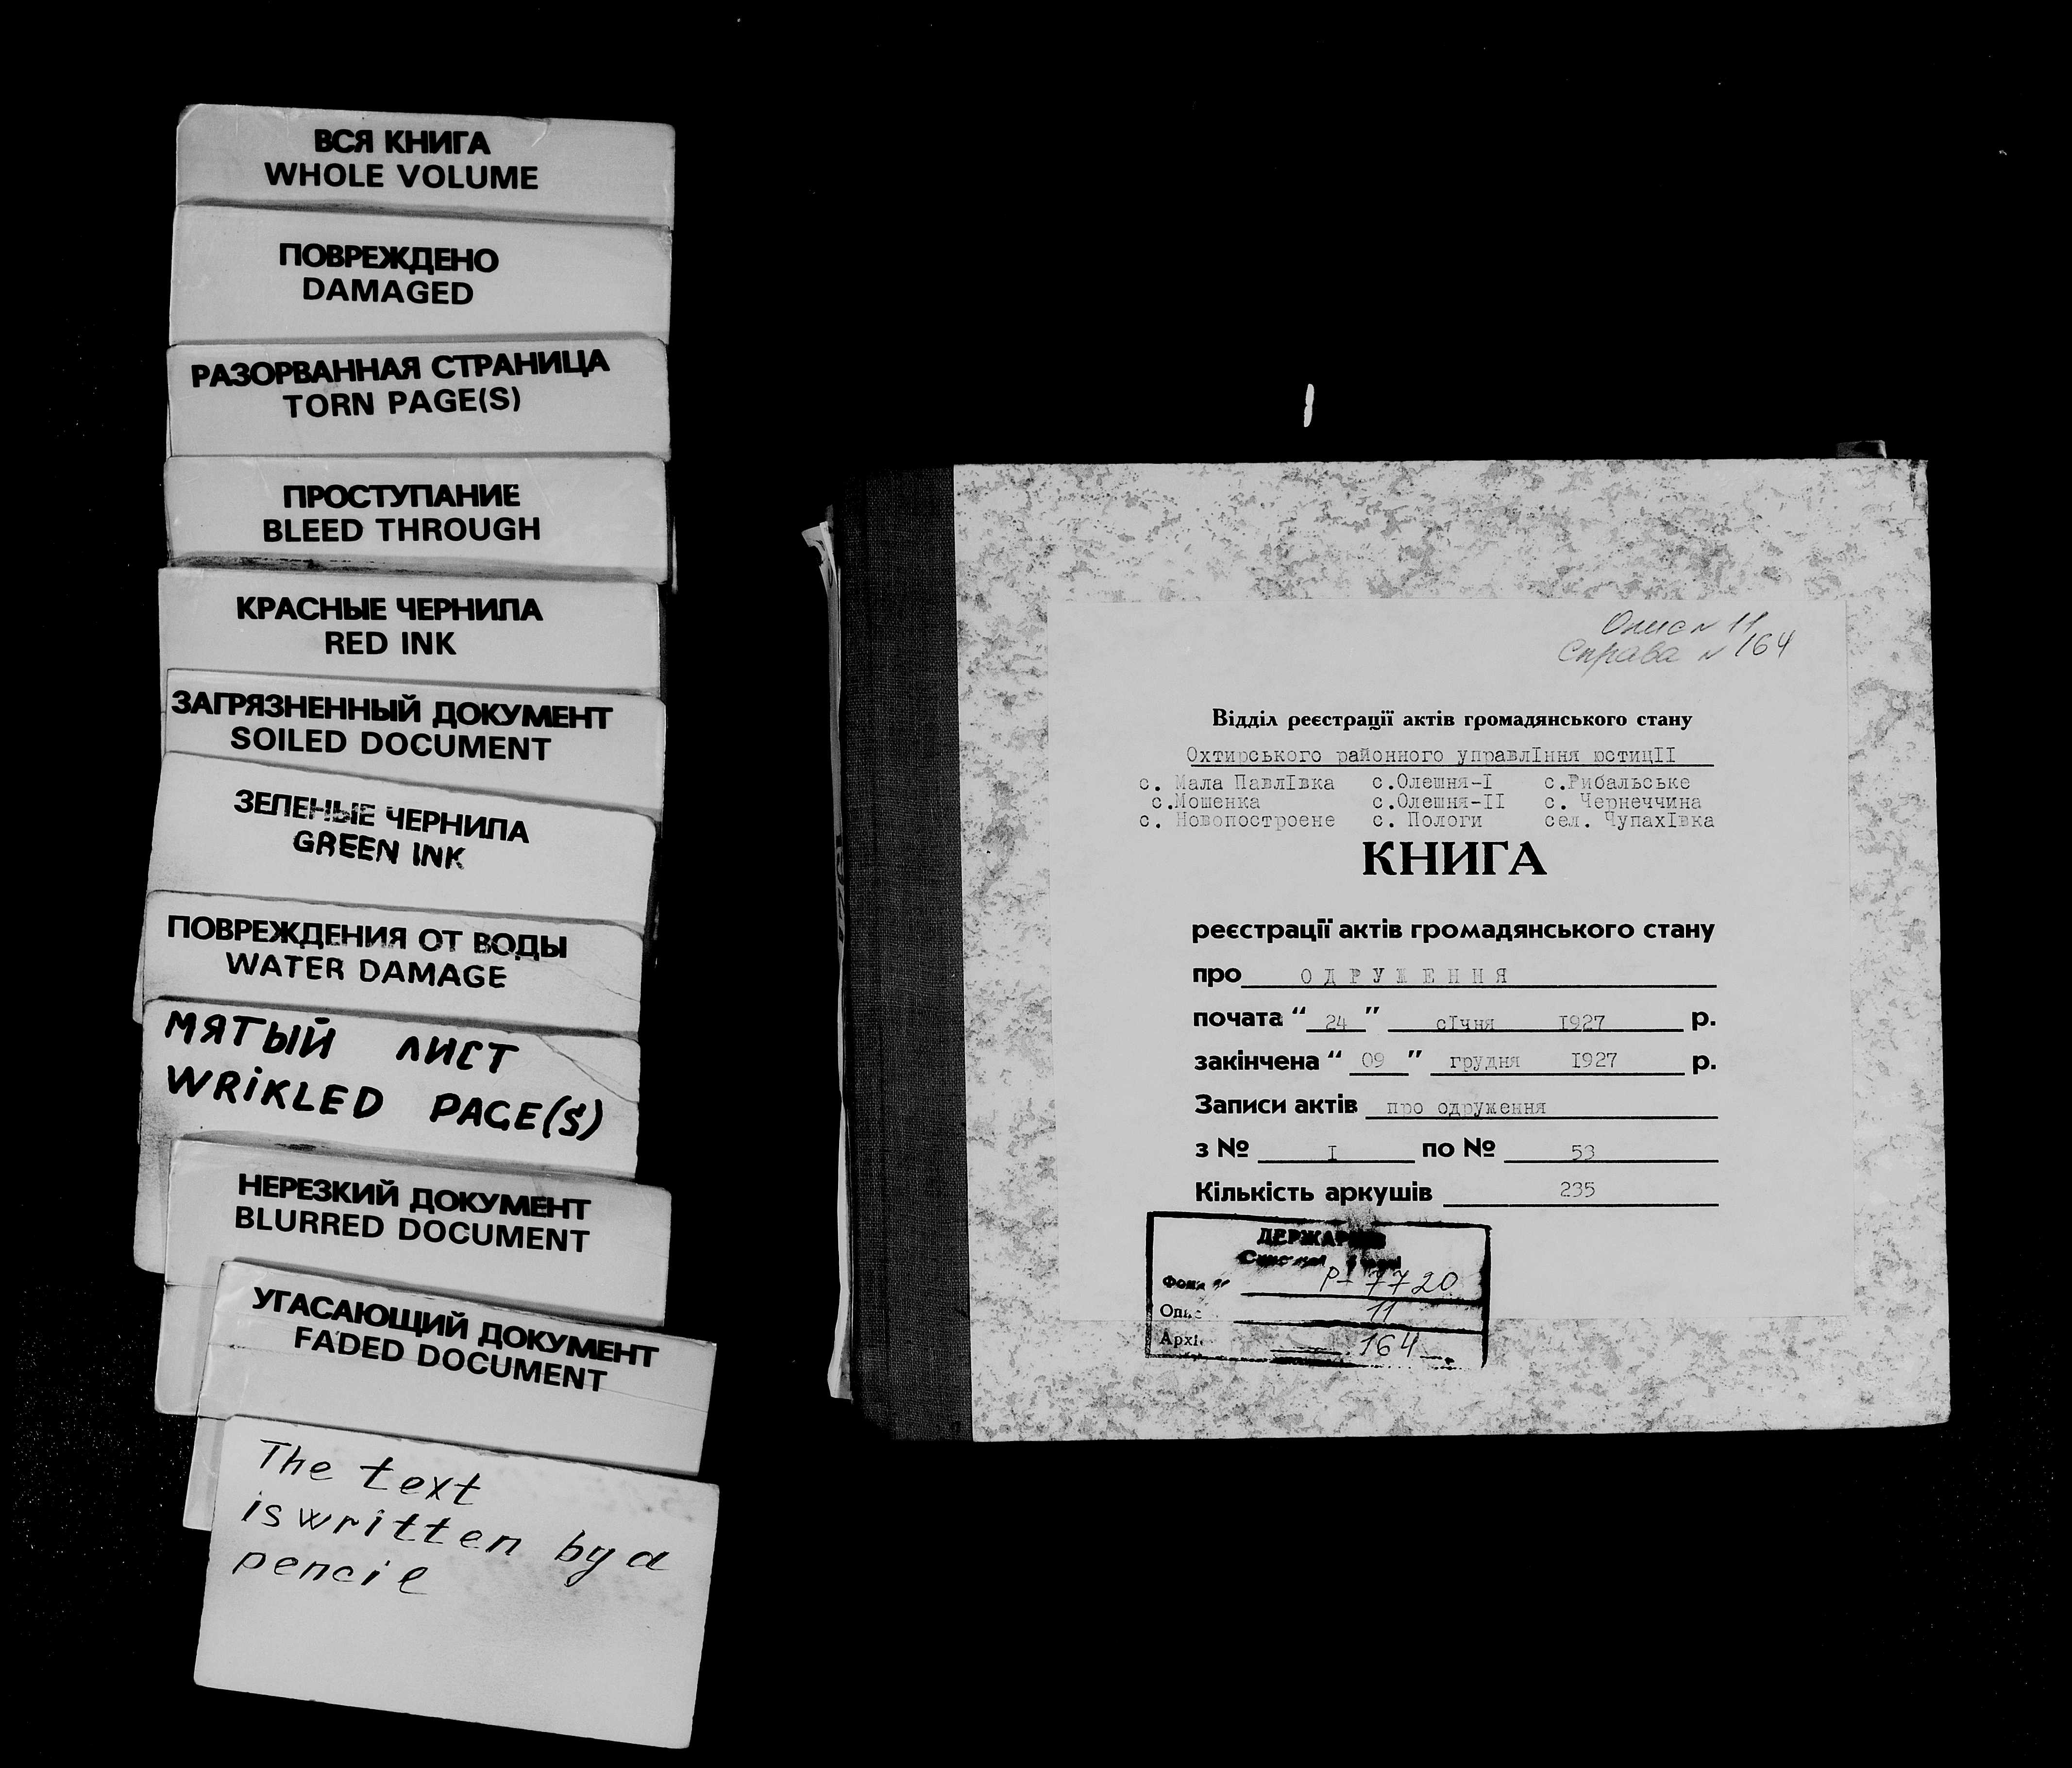 ВСЯ КНИГА
WHOLE VOLUME
ПОВРЕЖДЕНО
DAMAGED
РАЗОРВАННАЯ СТРАНИЦА
TORN PAGE(S)
ПРОСТУПАНИЕ
BLEED THROUGH
КРАСНЫЕ ЧЕРНИЛА
RED INK
ЗАГРЯЗНЕННЫЙ ДОКУМЕНТ
SOILED DOCUMENT
ЗЕЛЕНЫЕ ЧЕРНИЛА
GREEN INK
ПОВРЕЖДЕНИЯ ОТ ВОДЫ
WATER DAMAGE
МЯТЫЙ ЛИСТ
WRIKLED PAGE(S)
НЕРЕЗКИЙ ДОКУМЕНТ
BLURRED DOCUMENT
УГАСАЮЩИЙ ДОКУМЕНТ
FADED DOCUMENT
The text
is written by a
pencil
Опис N 11
Справа N 164
Відділ реєстрації актів громадянського стану
Охтирського районного управлІння юстицІІ
с. Мала ПавлІвка с.Олешня-І с.Рибальське
с.Мошенка с.Олешня-ІІ с. Чернеччина
с. Новопостроене с. Пологи сел. ЧупахІвка
КНИГА
реєстрації актів громадянського стану
про О Д Р У Ж Е Н Н Я
почата “ 24 ” сІчня І927 р.
закінчена “ 09 ” грудня І927 р.
Записи актів про одруження
з № І по № 53
Кількість аркушів 235
Фонд Р-7720
11
164